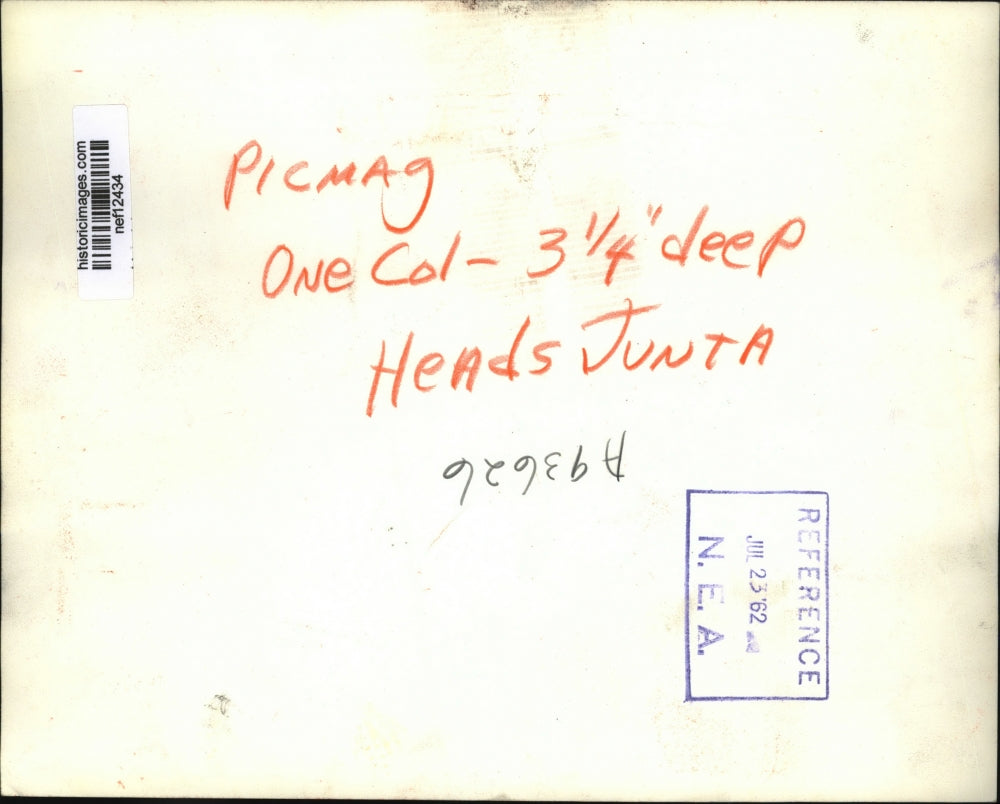 historicimages.com
nef12434
PICMAG
ONe Col - 3 1/4" deep
HeAds JUNTA
A93626
REFERENCE
JUL 23 '62
N. E. A.